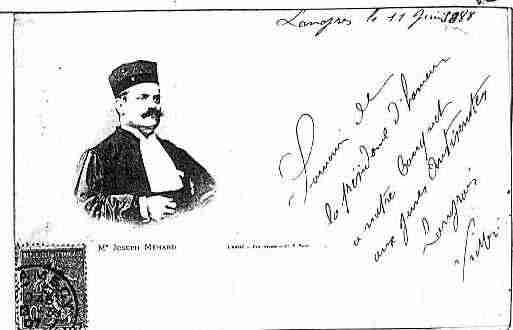 Langres le 11 Juin 1898
Souvenir de
la présidence d'honneur
a notre banquet
aux Jeunes Antisémites
Langrois
Victor
Mᵉ JOSEPH MÉNARD